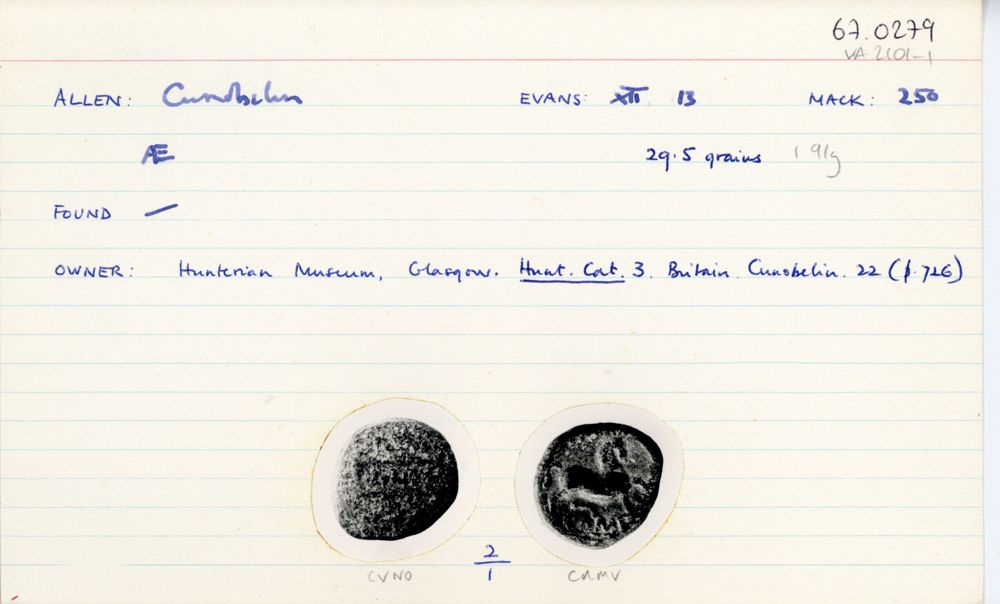 67.0279
VA 2101-1
ALLEN: Cunobelin EVANS: XII 13 MACK: 250
Æ 29.5 grains 1.91g
FOUND —
OWNER: Hunterian Museum, Glasgow. Hunt. Cat. 3. Britain. Cunobelin. 22 (p. 726)
2
1
CVNO CAMV